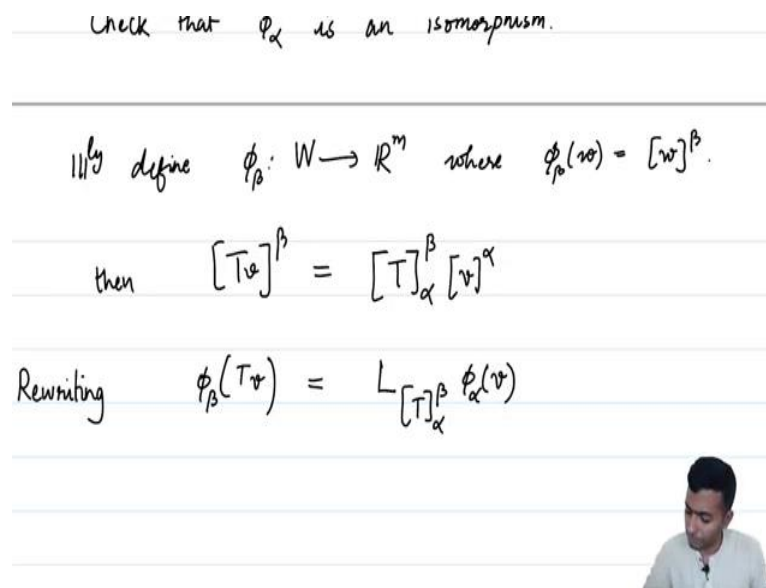 Check that φ_α is an isomorphism.
|||ly define φ_β : W → ℝ^m where φ_β(w) = [w]^β.
then [Tv]^β = [T]_α^β [v]^α
Rewriting φ_β(Tv) = L_{[T]_α^β} φ_α(v)